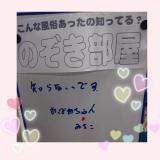 こんな風俗あったの知ってる?
のぞき部屋
知らないです
みちこ